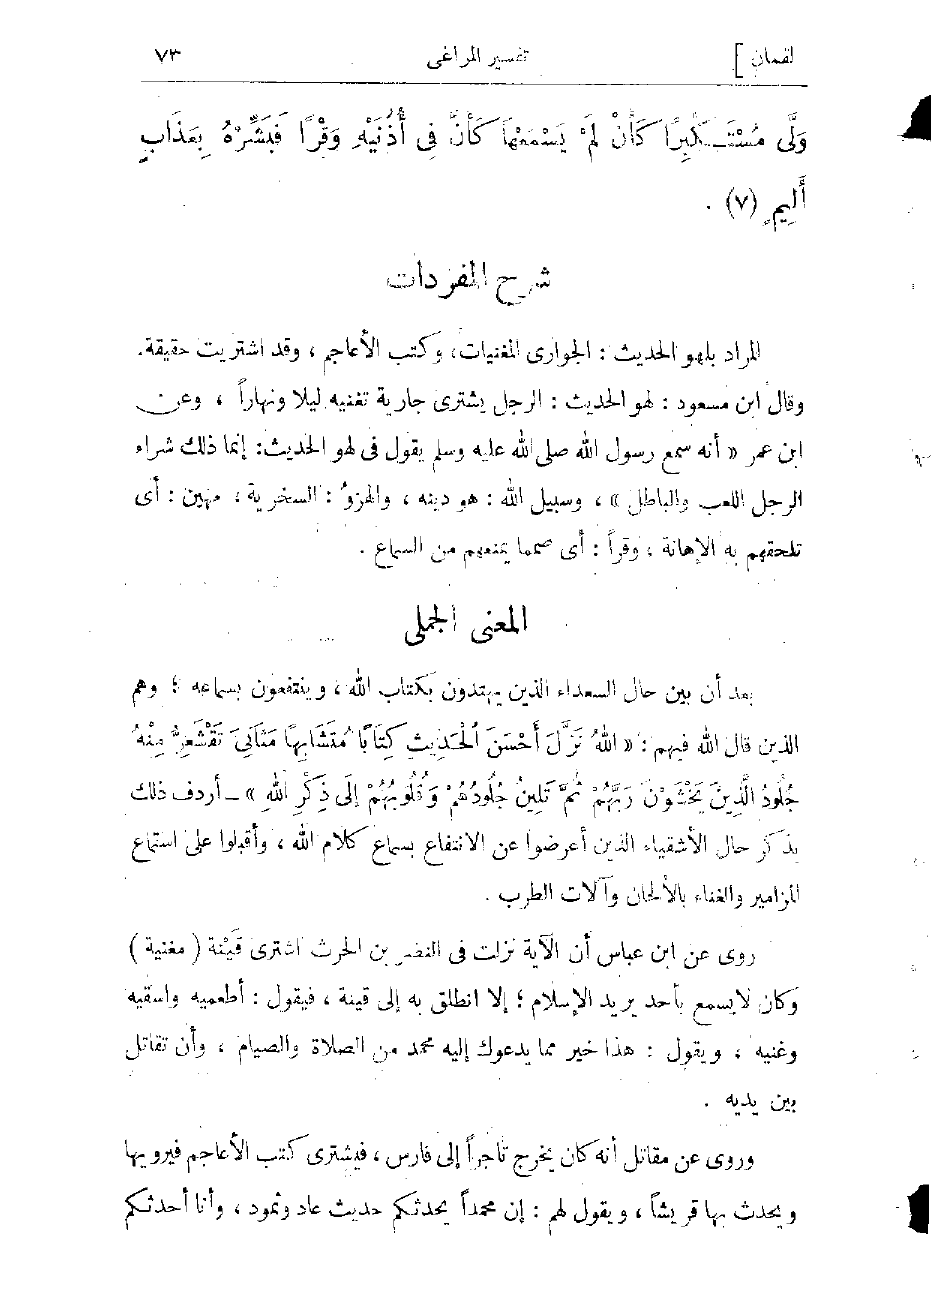 لقمان ] تفسير المراغى ٧٣
وَلَّى مُسْتَكْبِرًا كَأَنْ لَمْ يَسْمَعْهَا كَأَنَّ فِى أُذُنَيْهِ وَقْرًا فَبَشِّرْهُ بِعَذَابٍ
أَلِيمٍ (٧) .
شرح المفردات
المراد بلهو الحديث : الجوارى المغنيات، وكتب الأعاجم ، وقد اشتريت حقيقة.
وقال ابن مسعود : لهو الحديث : الرجل يشترى جارية تغنيه ليلا ونهاراً ، وعن
ابن عمر « أنه سمع رسول الله صلى الله عليه وسلم يقول فى لهو الحديث: إنما ذلك شراء
الرجل اللعب والباطل » ، وسبيل الله : هو دينه ، والهزؤ : السخرية ، مهين : أى
تلحقهم به الإهانة ، وقراً : أى صمما يمنعهم من السماع .
المعنى الجملى
بعد أن بين حال السعداء الذين يهتدون بكتاب الله ، وينتفعون بسماعه ؛ وهم
الذين قال الله فيهم : « اللهُ نَزَّلَ أَحْسَنَ الْحَدِيثِ كِتَابًا مُتَشَابِهًا مَثَانِىَ تَقْشَعِرُّ مِنْهُ
جُلُودُ الَّذِينَ يَخْشَوْنَ رَبَّهُمْ ثُمَّ تَلِينُ جُلُودُهُمْ وَقُلُوبُهُمْ إِلَى ذِكْرِ اللهِ » – أردف ذلك
بذكر حال الأشقياء الذين أعرضوا عن الانتفاع بسماع كلام الله ، وأقبلوا على استماع
المزامير والغناء بالألحان وآلات الطرب .
روى عن ابن عباس أن الآية نزلت فى النضر بن الحرث اشترى قَيْنة ( مغنية )
وكان لا يسمع بأحد يريد الإسلام ؛ إلا انطلق به إلى قينة ، فيقول : أطعميه واسقيه
وغنيه ، ويقول : هذا خير مما يدعوك إليه محمد من الصلاة والصيام ، وأن تقاتل
بين يديه .
وروى عن مقاتل أنه كان يخرج تاجراً إلى فارس ، فيشترى كتب الأعاجم فيرويها
ويحدث بها قريشاً ، ويقول لهم : إن محمداً يحدثكم حديث عاد وثمود ، وأنا أحدثكم